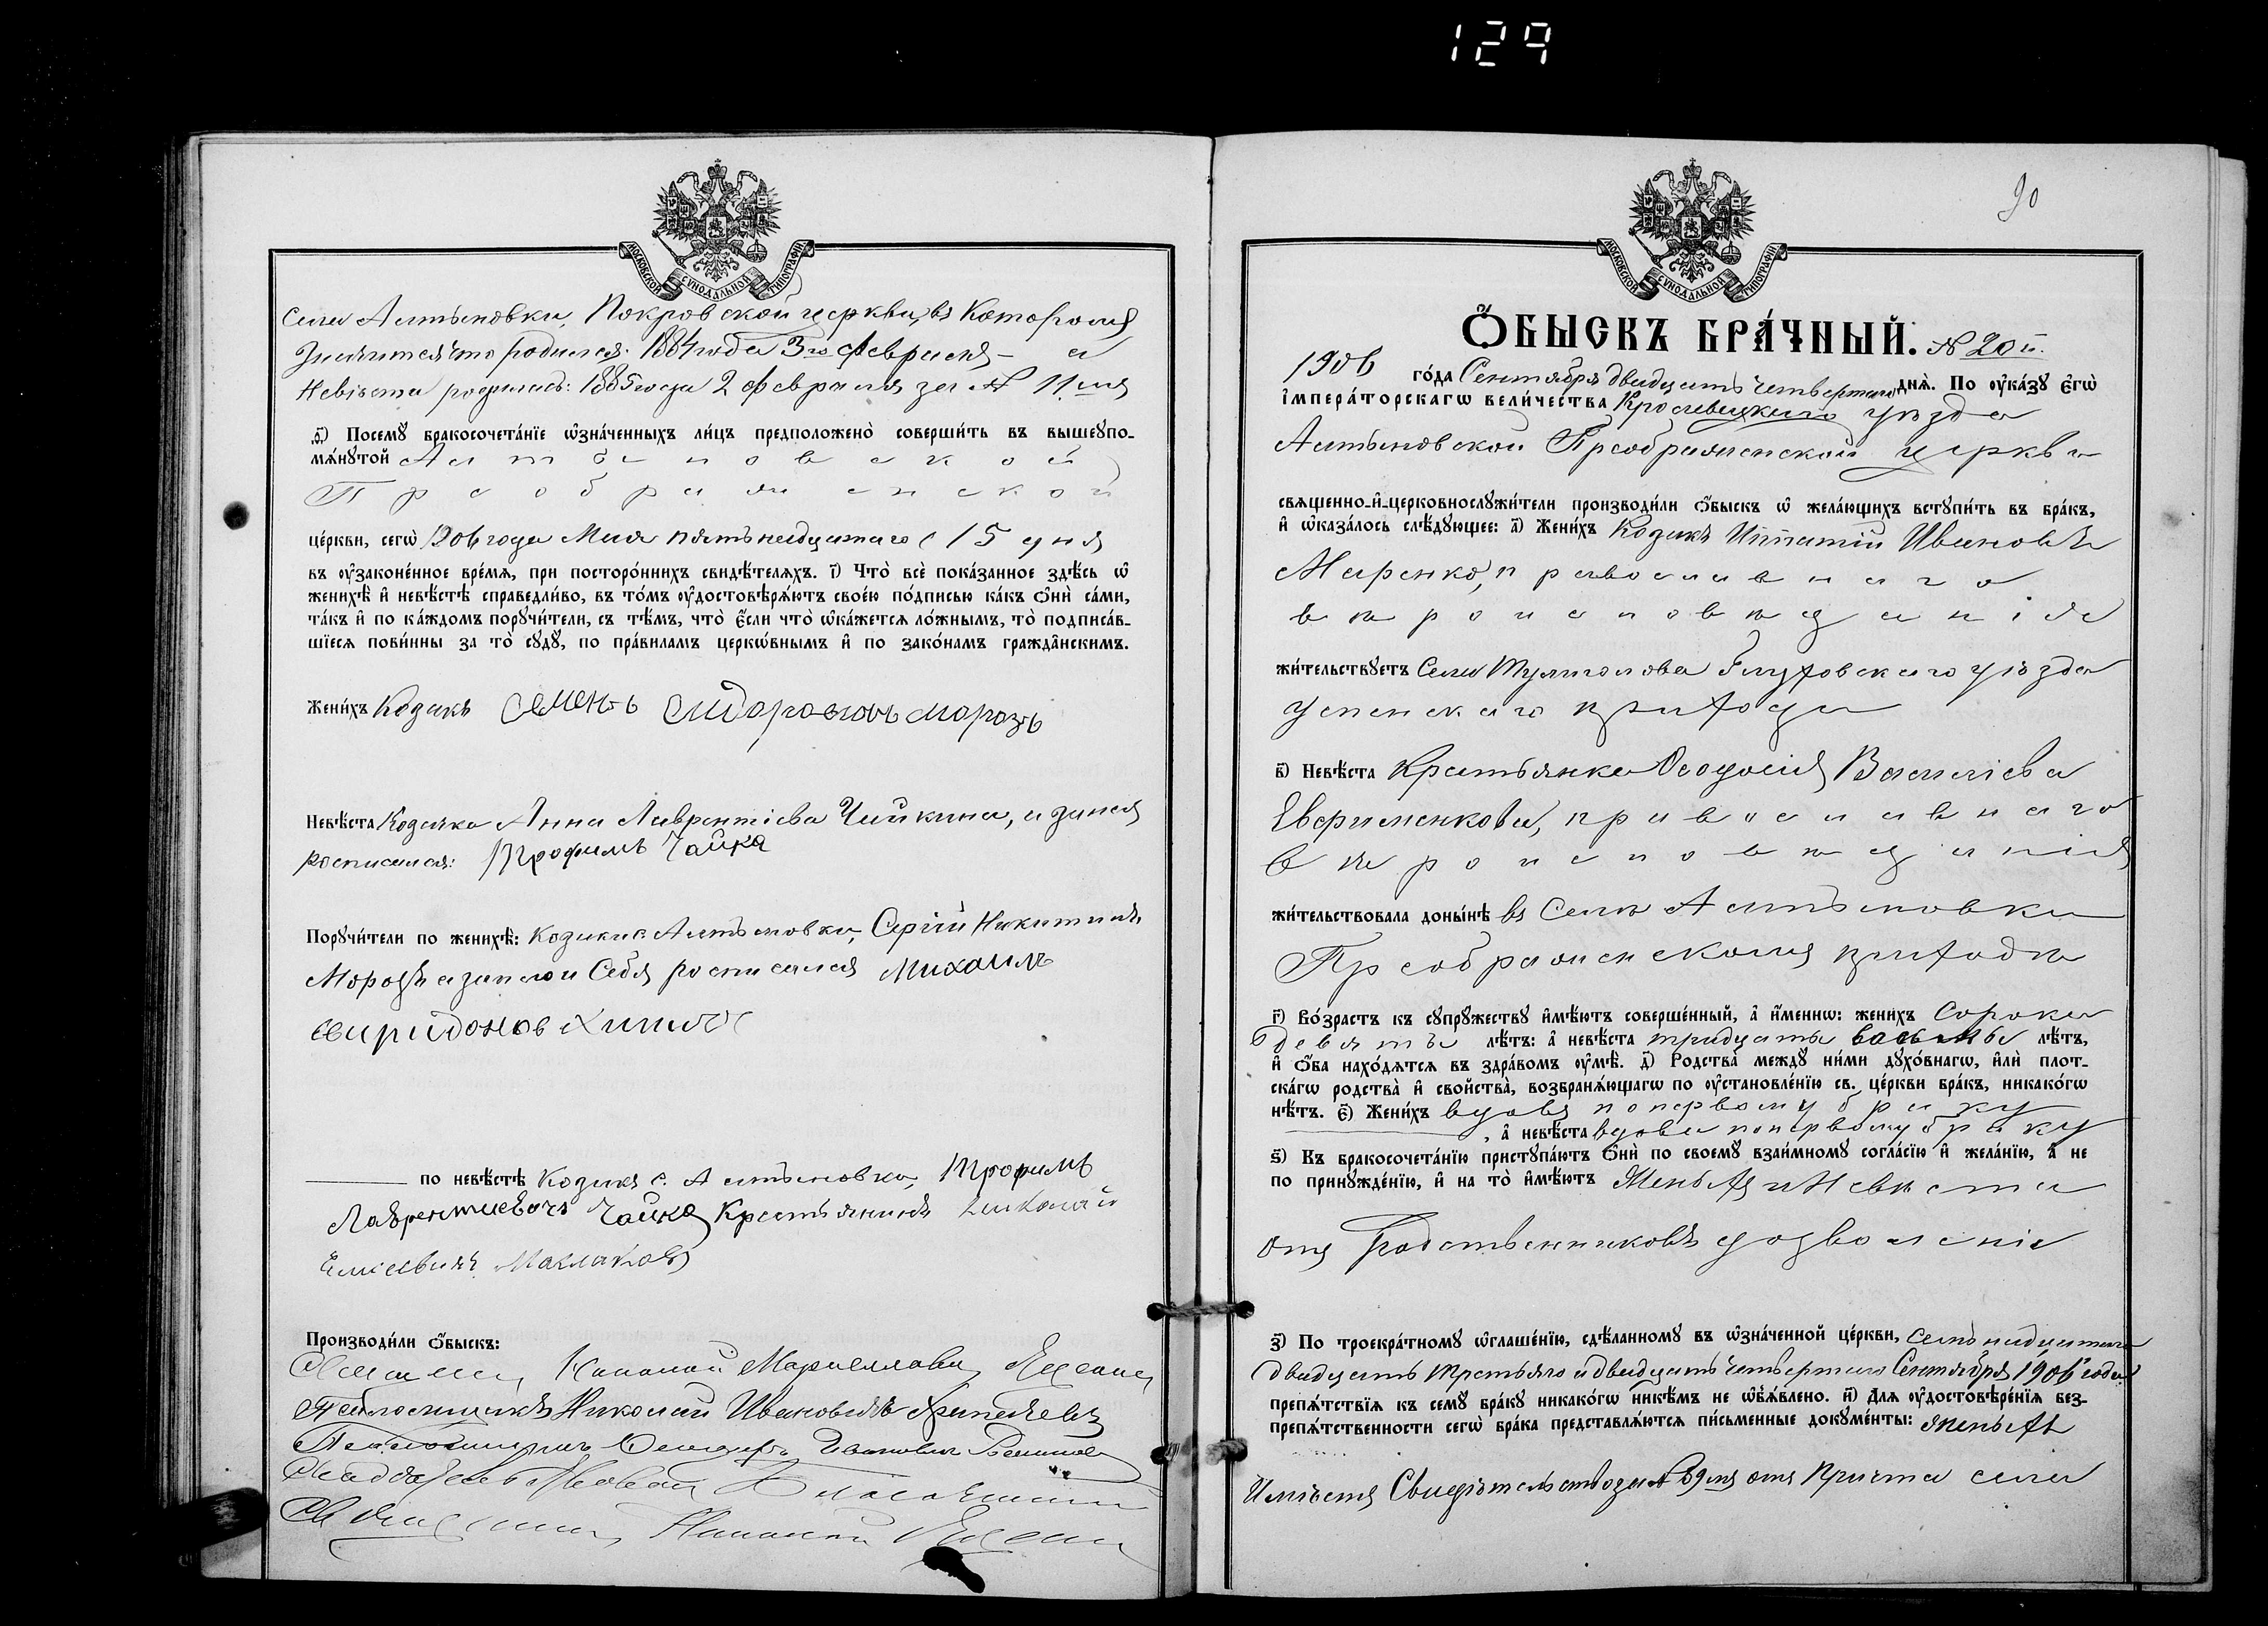 129
МОСКОВСКОЙ СУНОДАЛЬНОЙ ТИПОГРАФІИ
села Алтыновки, Покровской церкви, въ Которомъ
Значится что родился: 1884 года 3го Февраля – а
Невѣста родилась: 1885 года 2 февраля за № 11мъ
ѳ҃) Посемꙋ̀ бракосочета́нїе ѡ҆зна́ченныхъ ли́цъ предположено̀ соверши́ть въ вышеꙋпо-
мѧ́нꙋтой Алтыновской
Преображенской
це́ркви, сегѡ̀ 1906 года Мая пятьнадцатаго (15 дня
въ ᲂу҆законе́нное вре́мѧ, при посторо́ннихъ свидѣ́телѧхъ. і҃) Что̀ всѐ пока́занное здѣ́сь ѡ҆
женихѣ̀ и҆ невѣ́стѣ справедли́во, въ то́мъ ᲂу҆достовѣрѧ́ютъ свое́ю по́дписью ка́къ ѻ҆нѝ са́ми,
та́къ и҆ по ка́ждомъ порꙋчи́тели, съ тѣ́мъ, что̀ є҆́сли что̀ ѡ҆ка́жется ло́жнымъ, то̀ подписа́в-
шїеся пови́нны за то̀ сꙋдꙋ̀, по пра́виламъ церкѡ́внымъ и҆ по зако́намъ гражда̑нскимъ.
Жени́хъ Козакъ Семенъ Сидоровичъ Морозъ
Невѣ́ста Козачка Анна Лаврентіева Чайкина, а занея
росписался: Трофимъ Чайка
Порꙋчи́тели по женихѣ̀: Козаки с. Алтыновки, Сергій Никитинъ
Морозъ а занего и Себя росписался Михаилъ
Свиридонов
по невѣ́стѣ Козакъ с. Алтыновки, Трофимъ
Лаврентиевичъ Чайка Крестьянинъ Николай
Маклаковъ
Производи́ли ѻ҆́быскъ:
Николай Ивановичъ
90
МОСКОВСКОЙ СУНОДАЛЬНОЙ ТИПОГРАФІИ
Ѻ҆́БЫСКЪ БРА́ЧНЫЙ. № 20й.
1906 го́да Сентября двадцать четвертаго днѧ̀. По ᲂу҆ка́зꙋ є҆гѡ̀
і҆мпера́торскагѡ вели́чества Кролевецкаго уѣзда
Алтыновской Преображенской церкви
свѧщенно-и҆-церковнослꙋжи́тели производи́ли ѻ҆́быскъ ѡ҆ жела́ющихъ встꙋпи́ть въ бра́къ,
и҆ ѡ҆каза́лось слѣ́дꙋющее: а҃) Жени́хъ Козакъ Игнатій Ивановъ
Маренко, православнаго
вѣроисповѣданія
жи́тельствꙋетъ Села Тулиголова Глуховскаго уѣзда
Успенскаго прихода
в҃) Невѣ́ста Крестьянка Ѳеодосія Василіева
Евтименкова, православнаго
вѣроисповѣданія
жи́тельствовала доны́нѣ въ Селѣ Алтыновки
Преображенскомъ приходѣ
г҃) Во́зрастъ къ сꙋпрꙋ́жествꙋ и҆мѣ́ютъ соверше́нный, а҆ и҆́меннѡ: жени́хъ Сорока
девяти лѣ́тъ: а҆ невѣ́ста тридцати восьмы лѣ́тъ,
и҆ ѻ҆́ба нахо́дѧтся въ здра́вомъ ᲂу҆мѣ̀. д҃) Родства̀ междꙋ̀ ни́ми дꙋхо́внагѡ, и҆лѝ плот-
ска́гѡ родства̀ и҆ сво́йства, возбранѧ́ющагѡ по ᲂу҆становле́нїю св. це́ркви бра́къ, никако́гѡ
нѣ́тъ. є҃) Жени́хъ вдовъ попервому браку
, а҆ невѣ́ста вдова попервому браку
ѕ҃) Къ бракосочета́нїю пристꙋпа́ютъ ѻ҆нѝ по своемꙋ̀ взаи́мномꙋ согла́сїю и҆ жела́нїю, а҆ не
по принꙋжде́нїю, и҆ на то̀ и҆мѣ́ютъ Женихъ и Невѣста
отъ Родственниковъ дозволеніе
з҃) По троекра́тномꙋ ѡ҆глаше́нїю, сдѣ́ланномꙋ въ ѡ҆зна́ченной це́ркви, семьнадцатаго
двадцать третьяго и двадцать четвертаго Сентября 1906 года
препѧ́тствїя къ семꙋ̀ бра́кꙋ никако́гѡ никѣ́мъ не ѡ҆б̾ѧ́влено. и҃) Длѧ ᲂу҆достовѣре́нїѧ без-
препѧ́тственности сегѡ̀ бра́ка представлѧ́ются пи́сьменные докꙋме́нты: женихъ
Имѣетъ Свидѣтельство за № 69мъ отъ Причта села